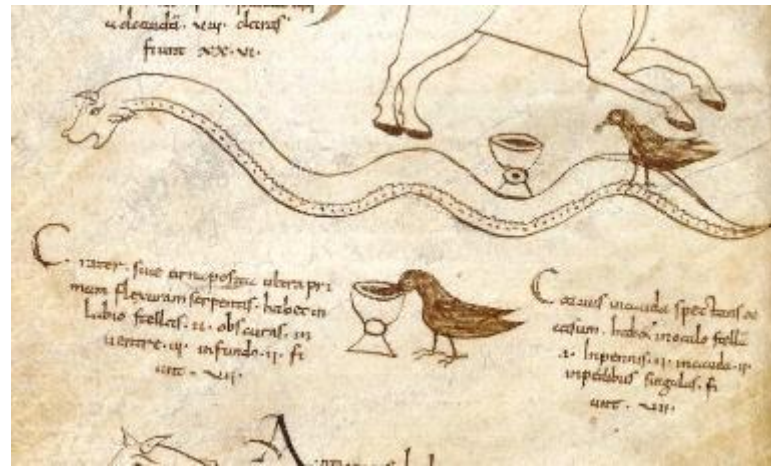 fiunt · xx · vi ·
Crater · sive urna posita ultra pri
mam flexuram serpentis · habet in
labio stellas · ii · obscuras · in
ventre · iii · in fundo · ii · fi
unt · vii ·
Corvus in cauda spectans oc
casum · habet in oculo stellā
i · In pennis · ii · in cauda · ii ·
in pedibus singulas · fi
unt · vii ·